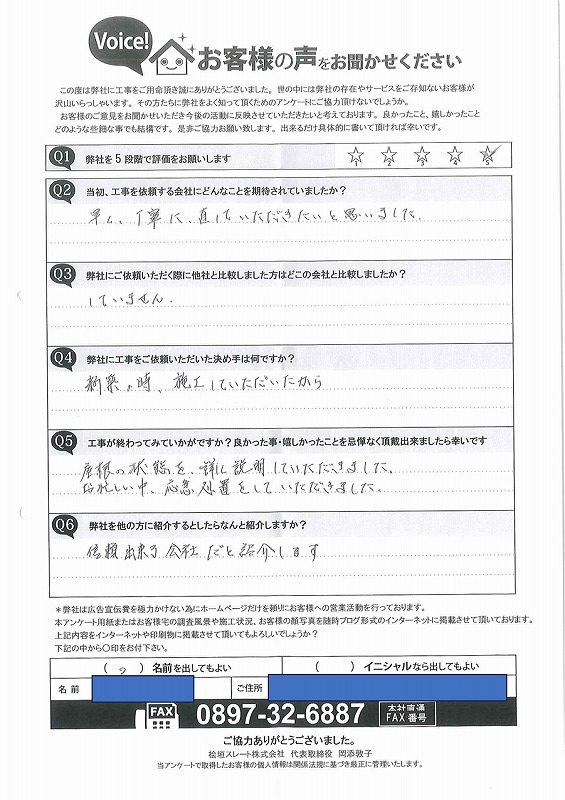 Voice!
お客様の声をお聞かせください
この度は弊社に工事をご用命頂き誠にありがとうございました。世の中には弊社の存在やサービスをご存知ないお客様が
沢山いらっしゃいます。その方たちに弊社をよく知って頂くためのアンケートにご協力頂けないでしょうか。
お客様のご意見をお聞かせいただき今後の活動に反映させていただきたいと考えております。良かったこと、嬉しかったこと
どのような些細な事でも結構です。是非ご協力お願い致します。出来るだけ具体的に書いて頂ければ幸いです。
Q1 弊社を5段階で評価をお願いします 1 2 3 4 5
Q2 当初、工事を依頼する会社にどんなことを期待されていましたか?
早く、丁寧に、直していただきたいと思いました。
Q3 弊社にご依頼いただく際に他社と比較しました方はどこの会社と比較しましたか?
していません。
Q4 弊社に工事をご依頼いただいた決め手は何ですか?
新築の時、施工していただいたから
Q5 工事が終わってみていかがですか?良かった事・嬉しかったことを忌憚なく頂戴出来ましたら幸いです
屋根の状態を、詳しく説明していただきました。
お忙しい中、応急処置をしていただきました。
Q6 弊社を他の方に紹介するとしたらなんと紹介しますか?
信頼出来る会社だと紹介します
*弊社は広告宣伝費を極力かけない為にホームページだけを頼りにお客様への営業活動を行っております。
本アンケート用紙またはお客様宅の調査風景や施工状況、お客様の顔写真を随時ブログ形式のインターネットに掲載させて頂いております。
上記内容をインターネットや印刷物に掲載させて頂いてもよろしいでしょうか?
下記の中から〇印をお付下さい。
( ) 名前を出してもよい ( ) イニシャルなら出してもよい
名前 ご住所
FAX 0897-32-6887 本社直通 FAX番号
ご協力ありがとうございました。
桧垣スレート株式会社 代表取締役 岡添敦子
当アンケートで取得したお客様の個人情報は関係法規に基づき厳正に管理いたします。